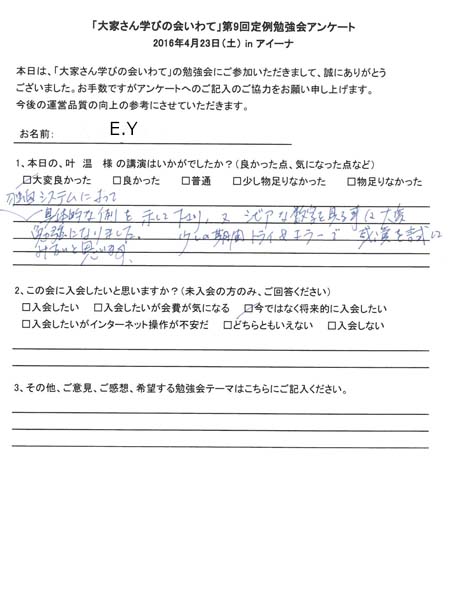 「大家さん学びの会いわて」第9回定例勉強会アンケート
2016年4月23日(土) in アイーナ
本日は、「大家さん学びの会いわて」の勉強会にご参加いただきまして、誠にありがとう
ございました。お手数ですがアンケートへのご記入のご協力をお願い申し上げます。
今後の運営品質の向上の参考にさせていただきます。
お名前: E.Y
1、本日の、叶 温 様 の講演はいかがでしたか?(良かった点、気になった点など)
□大変良かった □良かった □普通 □少し物足りなかった □物足りなかった
システムによって
具体的な例を示して下さり、又 シビアな数字を見る事は大変
勉強になりました。 少しの期間トライ&エラーで を試して
みたいと思います
2、この会に入会したいと思いますか?(未入会の方のみ、ご回答ください)
□入会したい □入会したいが会費が気になる □今ではなく将来的に入会したい
□入会したいがインターネット操作が不安だ □どちらともいえない □入会しない
3、その他、ご意見、ご感想、希望する勉強会テーマはこちらにご記入ください。